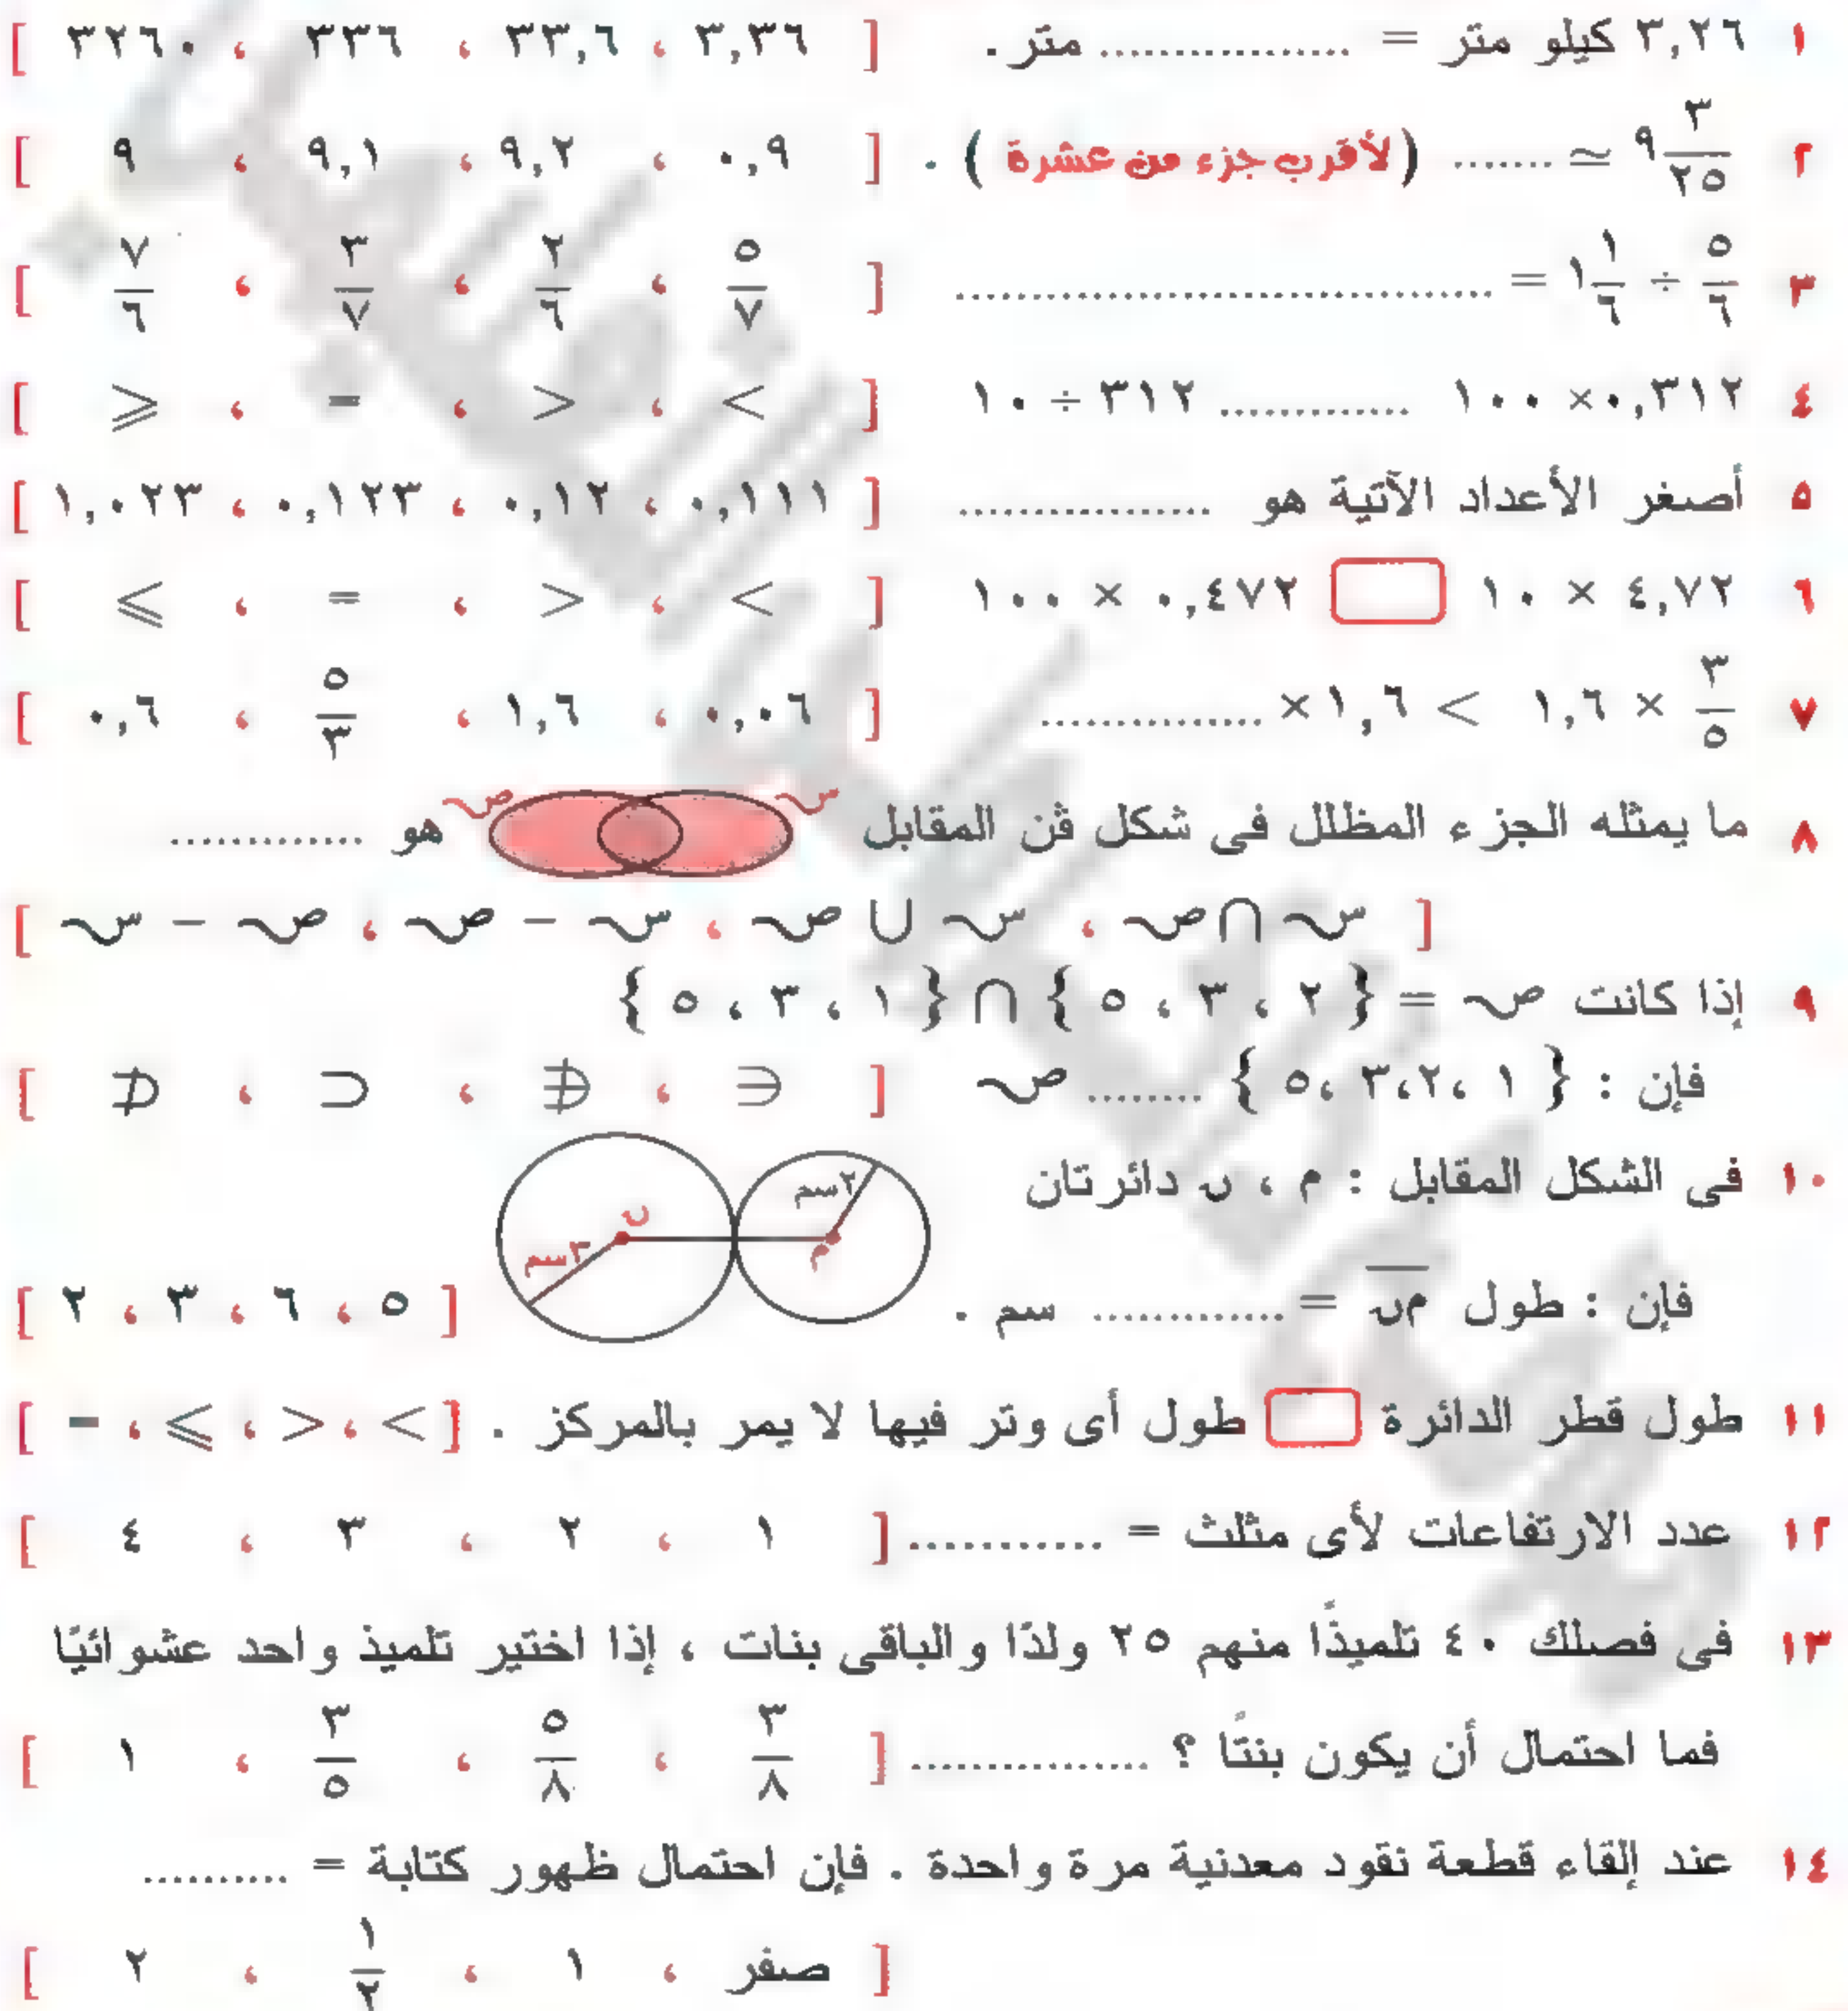 ١ ٣,٢٦ كيلو متر = ................ متر. [ ٣,٣٦ ، ٣٣,٦ ، ٣٣٦ ، ٣٢٦٠ ]
٢ ٩ ٣/٢٥ ≃ ....... (لأقرب جزء من عشرة) . [ ٠,٩ ، ٩,٢ ، ٩,١ ، ٩ ]
٣ ٥/٦ ÷ ١ ١/٦ = .................................. [ ٥/٧ ، ٢/٦ ، ٣/٧ ، ٧/٦ ]
٤ ٠,٣١٢ × ١٠٠ ............ ٣١٢ ÷ ١٠ [ < ، > ، = ، ⩾ ]
٥ أصغر الأعداد الآتية هو ................ [ ٠,١١١ ، ٠,١٢ ، ٠,١٢٣ ، ١,٠٢٣ ]
٦ ٤,٧٢ × ١٠ ٠,٤٧٢ × ١٠٠ [ < ، > ، = ، ⩽ ]
٧ ٣/٥ × ١,٦ > ١,٦ × .............. [ ٠,٠٦ ، ١,٦ ، ٥/٣ ، ٠,٦ ]
ما يمثله الجزء المظلل فى شكل ڤن المقابل س ص هو ............ ٨
[ س ∩ ص ، س ∪ ص ، س – ص ، ص – س ]
٩ إذا كانت ص = { ٢ ، ٣ ، ٥ } ∩ { ١ ، ٣ ، ٥ }
فإن : { ١ ،٢،٣ ،٥ } ........ ص [ ∈ ، ∉ ، ⊂ ، ⊄ ]
١٠ فى الشكل المقابل : م ، ن دائرتان
٢سم
م
ن
٣سم
فإن : طول من = ............. سم . [ ٥ ، ٦ ، ٣ ، ٢ ]
١١ طول قطر الدائرة طول أى وتر فيها لا يمر بالمركز . [ < ، > ، ⩽ ، = ]
١٢ عدد الارتفاعات لأى مثلث = ........... [ ١ ، ٢ ، ٣ ، ٤ ]
١٣ فى فصلك ٤٠ تلميذًا منهم ٢٥ ولدًا والباقى بنات ، إذا اختير تلميذ واحد عشوائيًا
فما احتمال أن يكون بنتًا ؟ .............. [ ٣/٨ ، ٥/٨ ، ٣/٥ ، ١ ]
١٤ عند إلقاء قطعة نقود معدنية مرة واحدة . فإن احتمال ظهور كتابة = ..........
[ صفر ، ١ ، ١/٢ ، ٢ ]